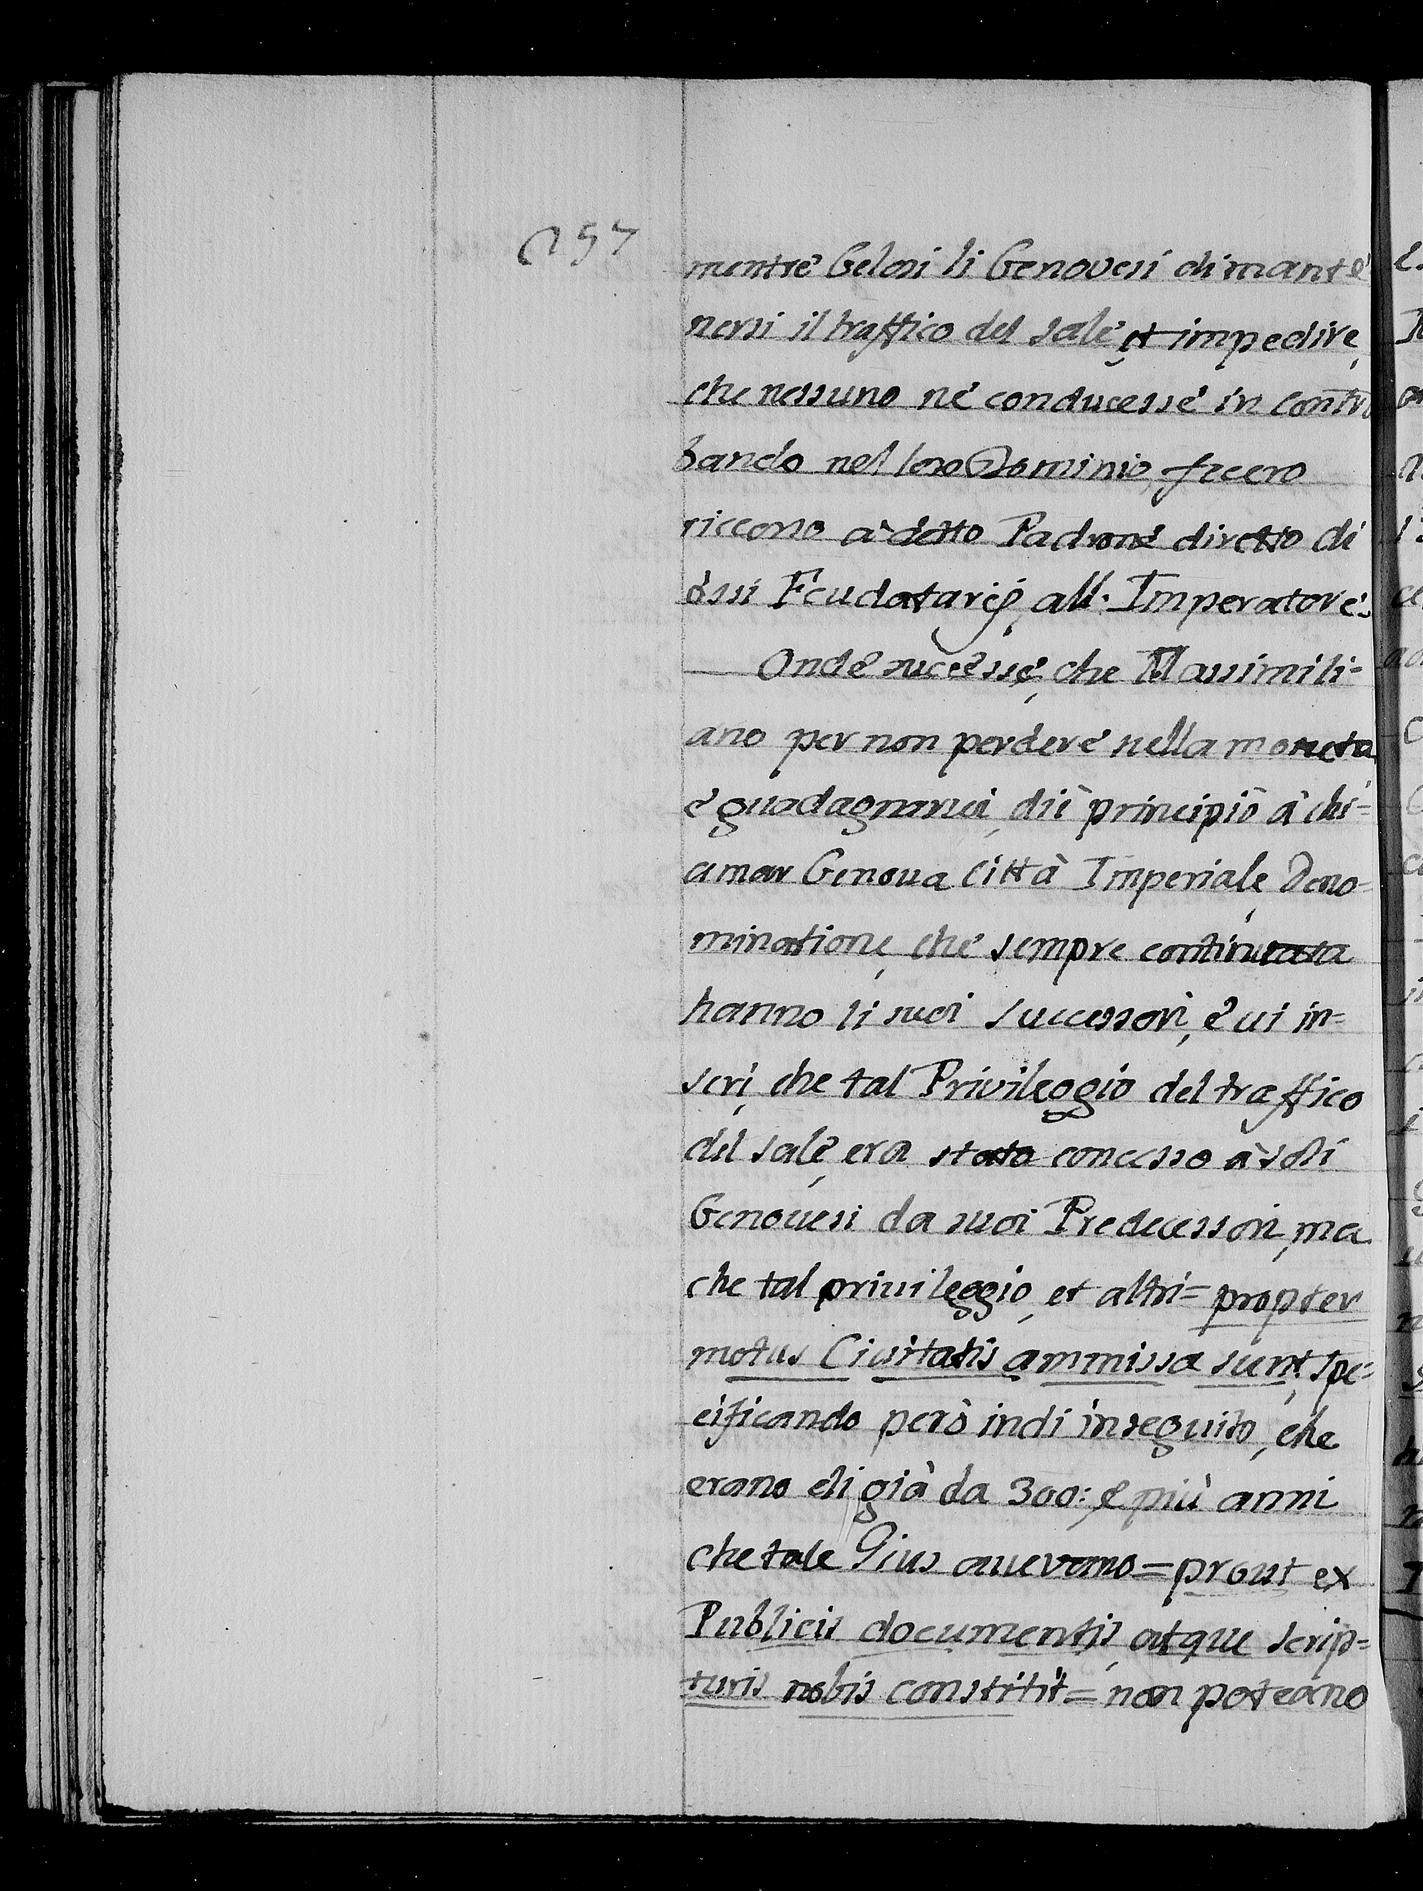 257
mentrè Gelosi li Genovesi di mantè
nersi il traffico del salè, et impedire,
che nessuno nè conducessè in Contra
bando nel loro Dominio, fecero
riccorso à detto Padronè diretto di
èssi Feudatarij, all' Imperatorè.
Ondè sucèssè, che Massimili=
ano per non perderè nella moneta
è guadagnarci, diè principiò à chi=
amar Genova Città Imperiale, Deno=
minatione, chè sempre continuata
hanno li suoi successori, è vi in=
serì, che tal Privileggio del traffico
del salè, era stato concesso à soli
Genouesi da suoi Predecessori, ma
che tal priuileggio, et altri= propter
motus Ciuitatis ammissa sunt, spe=
cificando però indi inseguito, che
erano eli già da 300: è più anni
che tale Gius auevano= prout ex
Publicis documentis, atque scrip=
turis nobis constitit= non poteano